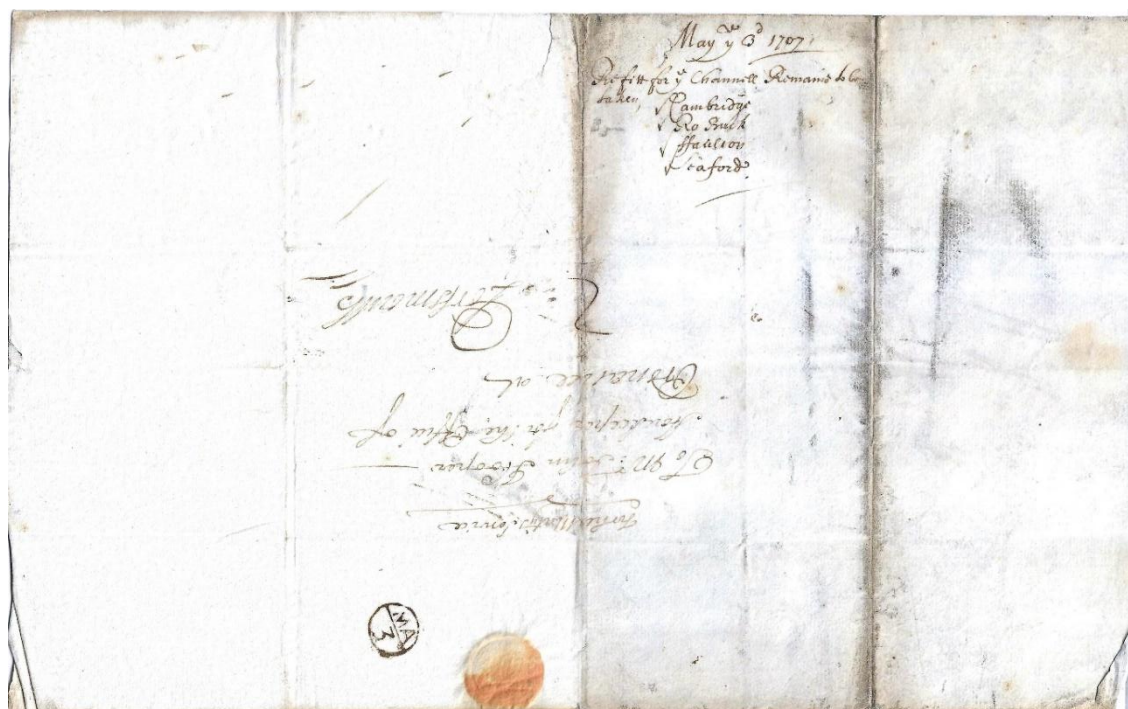 May yᵉ 3ᵈ 1707
Refitt for yᵉ Channell Remains to be
taken
Cambridge
Ro Buck
ffaulcon
Seaford
For her Maty's Service
To Mʳ John Hooper
Storekeeper for the Office of
Ordnance at
Portsmouth
MA
3